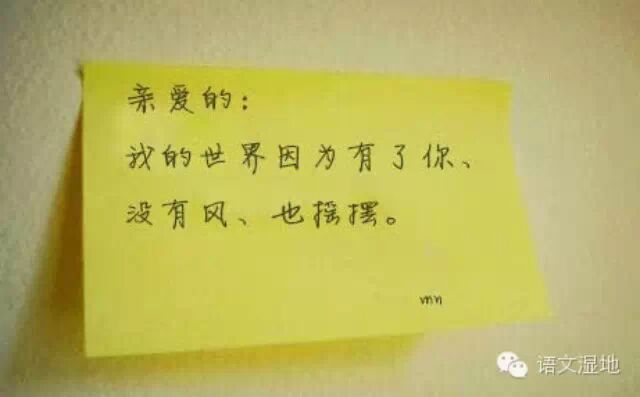 亲爱的：
我的世界因为有了你、
没有风、也摇摆。
mn
语文湿地